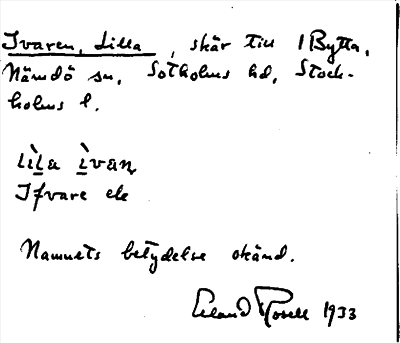 Ivaren, Lilla, skär till 1 Bytta,
Nämdö sn, Sotholms hd, Stock-
holms l.
lìla ìvan
Ifvare ek
Namnets betydelse okänd.
Erland Rosell 1933